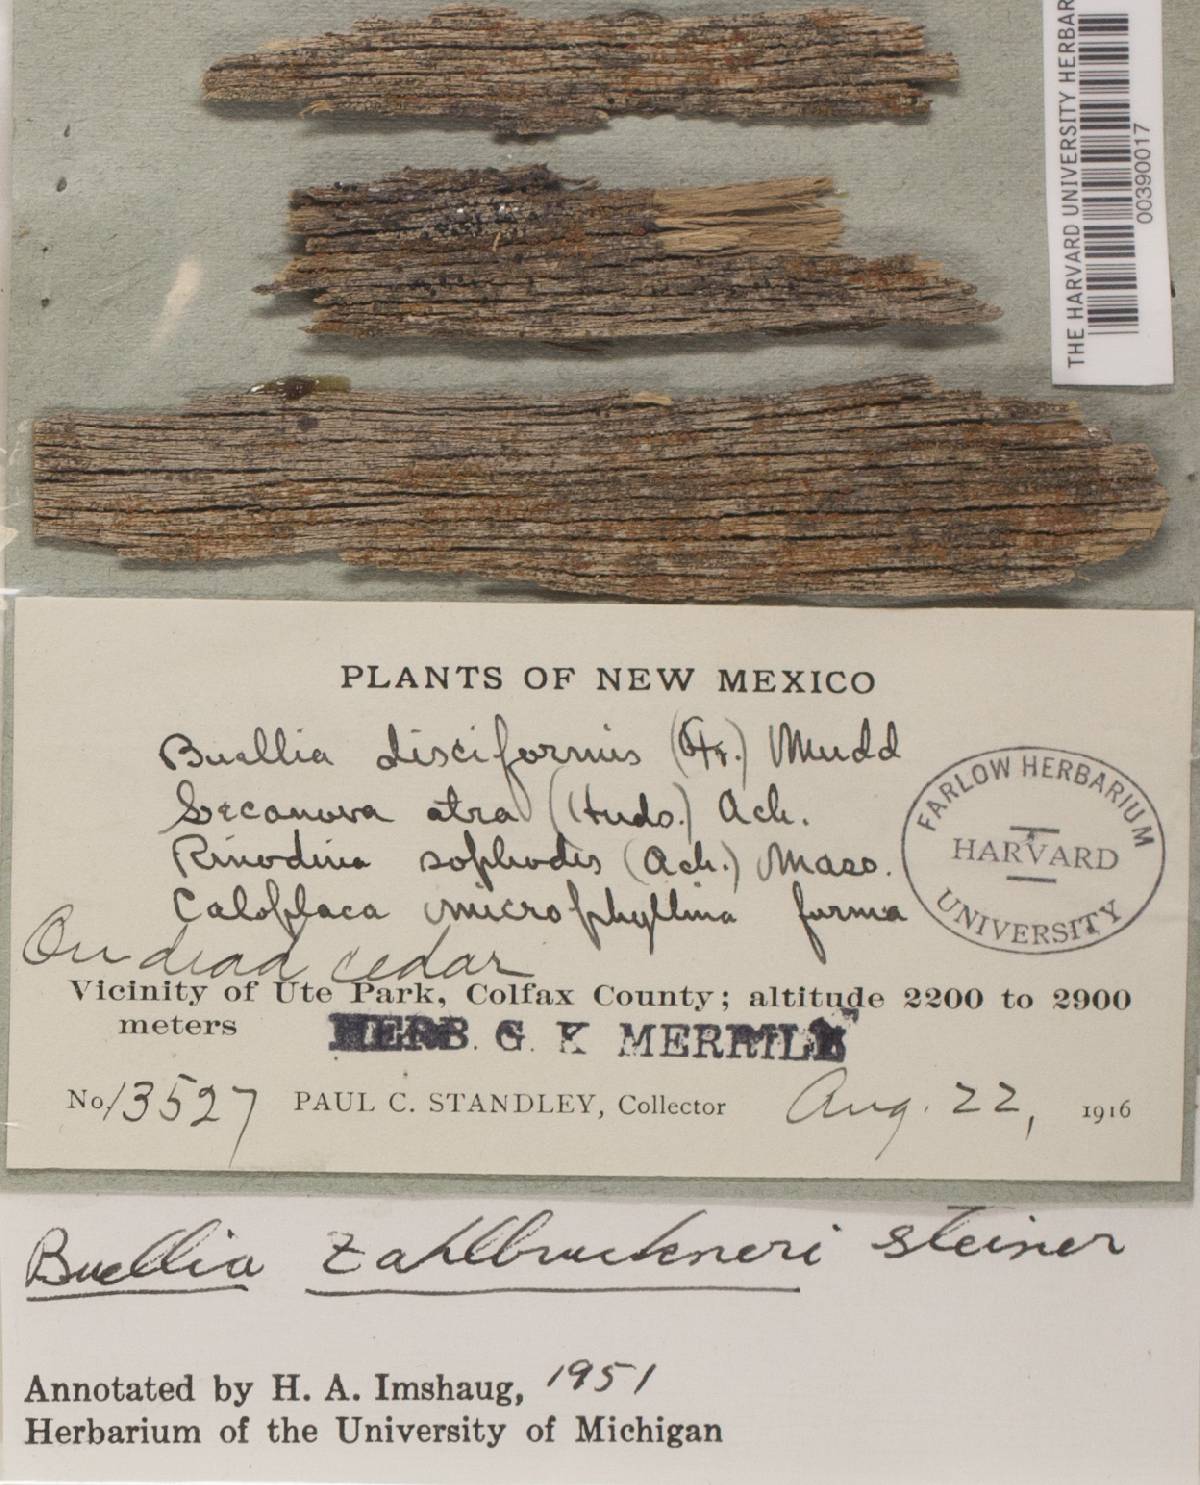 THE HARVARD UNIVERSITY HERBAR
00390017
PLANTS OF NEW MEXICO
Buellia disciformis (Fr.) Mudd
Lecanora atra (Huds.) Ach.
Rinodina sophodes (Ach.) Mass.
Caloplaca microphyllina forma
On dead cedar
Vicinity of Ute Park, Colfax County; altitude 2200 to 2900
meters
HERB. G. K MERRILL
No 13527 PAUL C. STANDLEY, Collector Aug. 22, 1916
FARLOW HERBARIUM
HARVARD
UNIVERSITY
Buellia Zahlbruckneri Steiner
Annotated by H. A. Imshaug, 1951
Herbarium of the University of Michigan